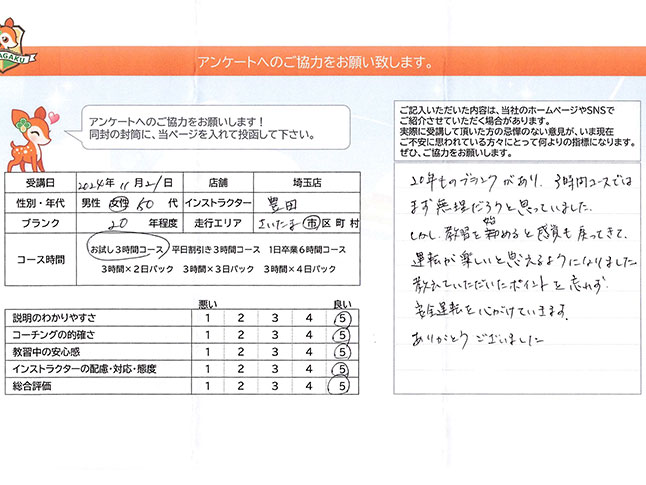 AGAKU
アンケートへのご協力をお願い致します。
アンケートへのご協力をお願いします！
同封の封筒に、当ページを入れて投函して下さい。
受講日 2024年 11月 21日 店舗 埼玉店
性別・年代 男性 女性 50 代 インストラクター 豊田
ブランク 20 年程度 走行エリア さいたま 市 区 町 村
コース時間 お試し3時間コース 平日割引き3時間コース 1日卒業6時間コース
3時間×2日パック 3時間×3日パック 3時間×4日パック
悪い 良い
説明のわかりやすさ 1 2 3 4 5
コーチングの的確さ 1 2 3 4 5
教習中の安心感 1 2 3 4 5
インストラクターの配慮・対応・態度 1 2 3 4 5
総合評価 1 2 3 4 5
ご記入いただいた内容は、当社のホームページやSNSで
ご紹介させていただく場合があります。
実際に受講して頂いた方の忌憚のない意見が、いま現在
ご不安に思われている方々にとって何よりの指標になります。
ぜひ、ご協力をお願いします。
20年ものブランクがあり、3時間コースでは
まず無理だろうと思っていました。
しかし、教習を始めると感覚も戻ってきて、
運転が楽しいと思えるようになりました
教えていただいたポイントを忘れず、
安全運転を心がけていきます。
ありがとうございました